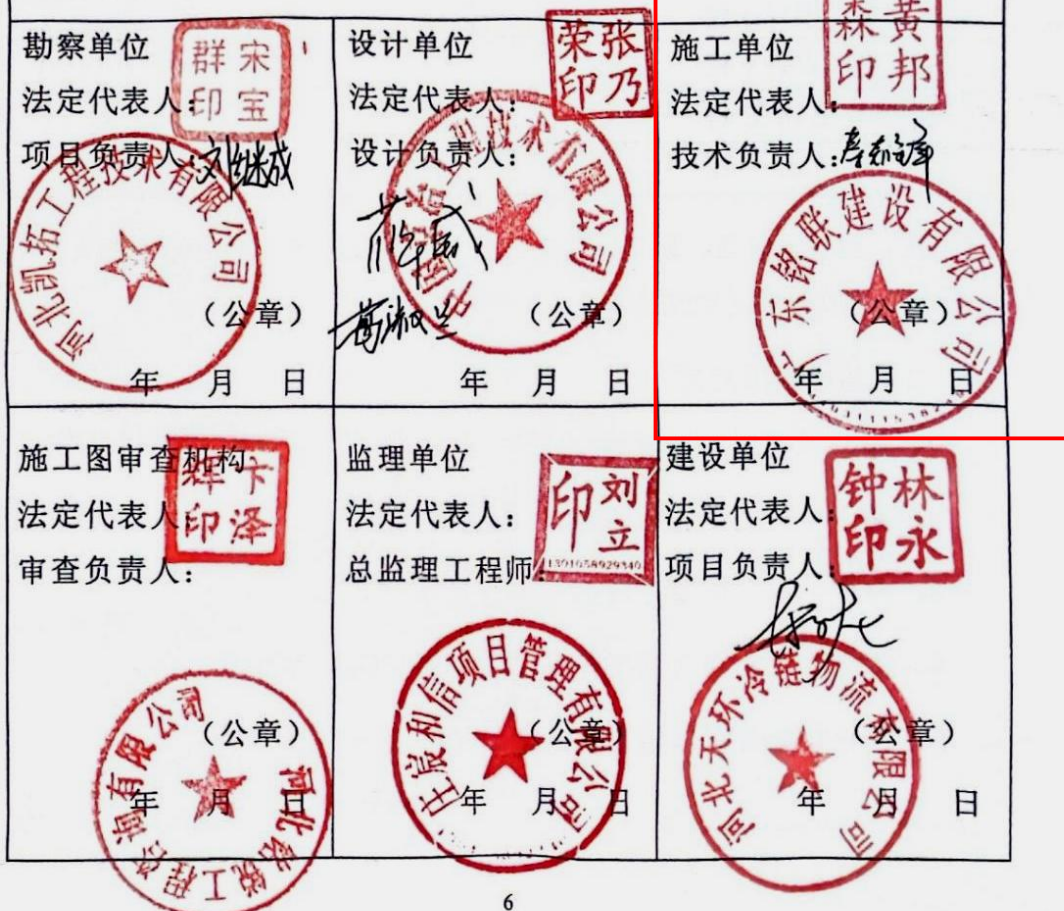 勘察单位
宋宝群印
法定代表人:
项目负责人:刘继成
河北凯拓工程技术有限公司
(公章)
年 月 日
设计单位
张乃荣印
法定代表人:
设计负责人:
工程技术有限公司
(公章)
年 月 日
施工单位
黄邦森印
法定代表人:
技术负责人:
广东铭联建设有限公司
(公章)
年 月 日
施工图审查机构
卞泽辉印
法定代表人:
审查负责人:
工程咨询有限公司
(公章)
年 月 日
监理单位
刘立印
法定代表人:
总监理工程师:
1301058929340
庄宸和信项目管理有限公司
(公章)
年 月 日
建设单位
林永钟印
法定代表人:
项目负责人:
河北天环冷链物流有限公司
(公章)
年 月 日
6